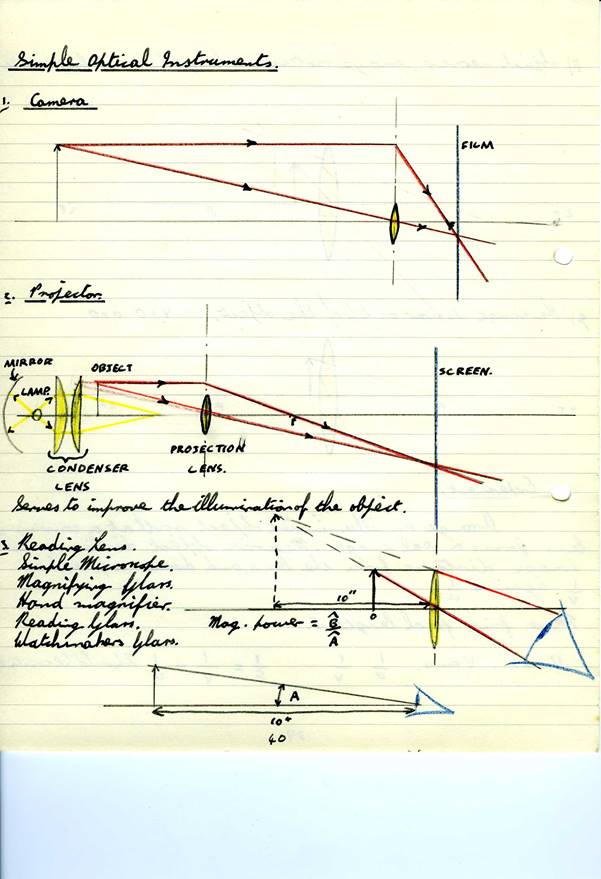 Simple Optical Instruments.
1. Camera
FILM
2. Projector.
MIRROR
OBJECT
SCREEN.
LAMP.
PROJECTION
LENS.
CONDENSER
LENS
Serves to improve the illumination of the object.
3. Reading Lens.
Simple Microscope.
Magnifying Glass.
Hand magnifier.
Reading Glass.
Watchmakers Glass.
10"
O
Mag. power = B̂
Â
A
10"
40